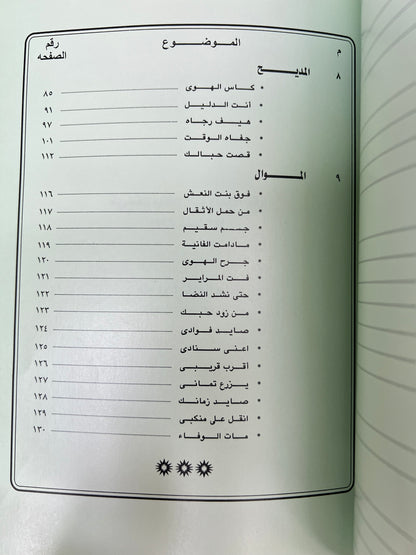 م الموضوع رقم الصفحه
٨ المديح
• كاس الهوى ٨٥
• أنت الدليل ٩١
• هيف رجاه ٩٧
• جفاه الوقت ١٠١
• قصت حبالك ١١٢
٩ الموال
• فوق بنت النعش ١١٦
• من حمل الأثقال ١١٧
• جسم سقيم ١١٨
• مادامت الفانية ١١٩
• جرح الهوى ١٢٠
• فت المراير ١٢١
• حتى نشد النضا ١٢٢
• من زود حبك ١٢٣
• صايد فوادى ١٢٤
• اعنى سنادى ١٢٥
• أقرب قريبى ١٢٦
• يزرع تمانى ١٢٧
• صايد زمانك ١٢٨
• انقل على منكبى ١٢٩
• مات الوفاء ١٣٠